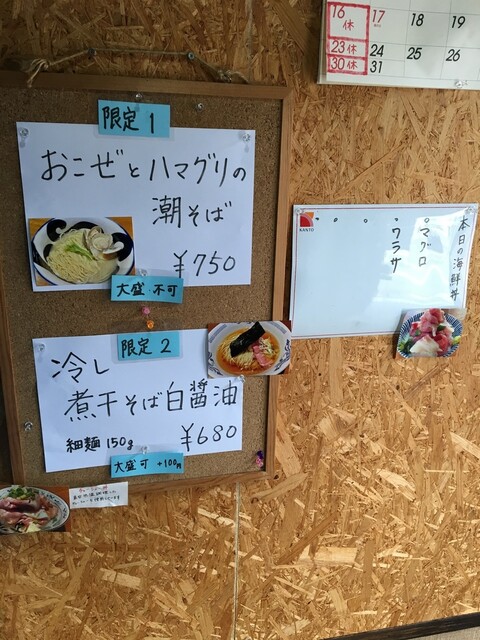 限定 1
おこぜとハマグリの
潮そば
¥750
大盛・不可
限定 2
冷し
煮干そば白醤油
細麺 150g
¥680
大盛可 +100円
本日の海鮮丼
マグロ
ワラサ
KANTO
16 休
17
18
19
23 休
24
25
26
30 休
31